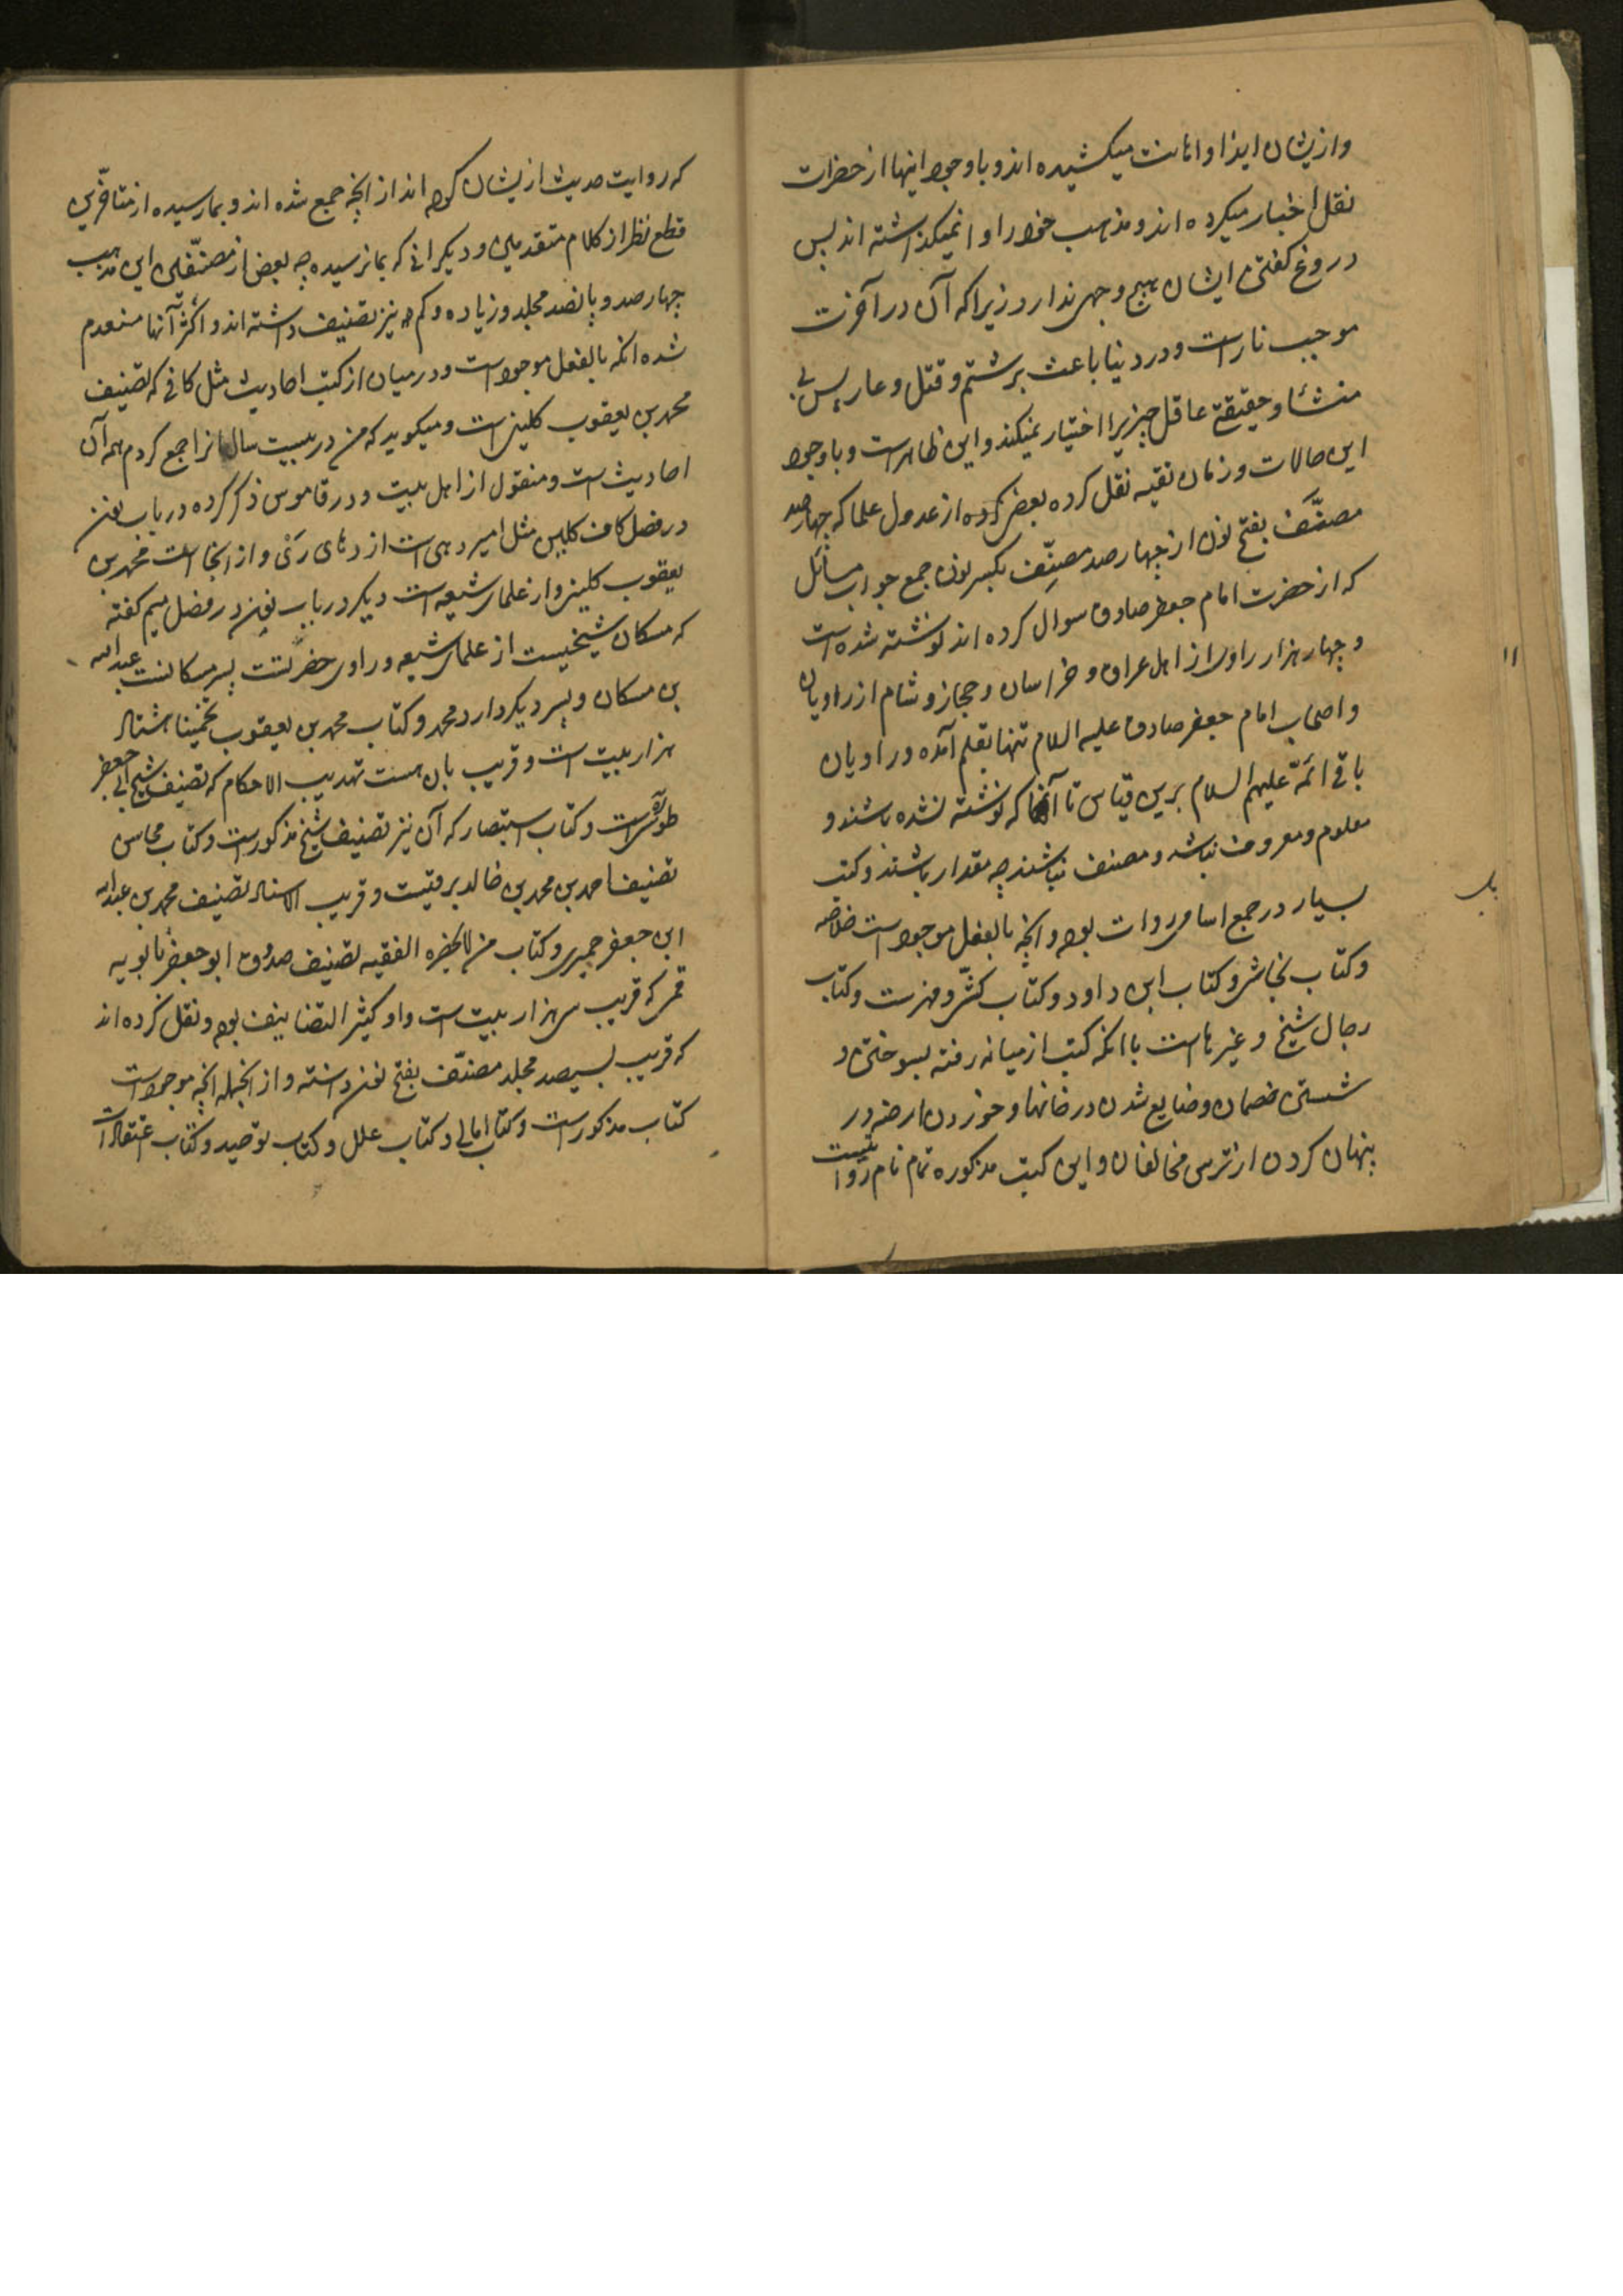 وازیشان ایذا و اهانت میکشیده اند و باوجود اینها از حضرات
نقل اخبار میکرده اند و مذهب خود را وا نمیکذاشته اند پس
دروغ کفتن ایشان هیچ وجهی ندارد زیرا که آن در آخرت
موجب نارست و در دنیا باعث بر شتم و قتل و عار پس بی
منشاء و حقیقة عاقل چیزیرا اختیار نمیکند و این ظاهرست و باوجود
این حالات و زمان تقیه نقل کرده بعضی از عدول علما که چهارصد
مصنَّف بفتح نون از چهارصد مصنِّف بکسر نون جمع جواب مسائل
که از حضرت امام جعفر صادق سوال کرده اند نوشته شده است
و چهار هزار راوی از اهل عراق و خراسان و حجاز و شام از راویان
و اصحاب امام جعفر صادق علیه السلام تنها بقلم آمده و راویان
باقی ائمّة علیهم السلام برین قیاس تا آنها که نوشته نشده باشند و
معلوم و معروف نباشد و مصنف نباشند چه مقدار باشند و کتب
بسیار در جمع اسامی روات بوده و انچه بالفعل موجود است خلاصه
و کتاب نجاشی و کتاب ابن داود و کتاب کشّی و فهرست و کتاب
رجال شیخ و غیرهاست با انکه کتب از میانه رفته بسوختن و
شستن خصمان و ضایع شدن در خانها و خوردن ارضه و در
پنهان کردن از ترس مخالفان و این کتب مذکوره تمام نام روا تیست
۱۱
که روایت حدیث ازیشان کرده اند از انچه جمع شده اند و بما رسیده از متاخّرین
قطع نظر از کلام متقدمین و دیکرانی که بما نرسیده چه بعض از مصنّفین این مذهب
چهارصد و پانصد مجلد و زیاده و کم هم نیز تصنیف داشته اند و اکثر آنها منعدم
شده انکه بالفعل موجود است و در میان از کتب احادیث مثل کافی که تصنیف
محمد بن یعقوب کلینی است و میکوید که من در بیست سال انرا جمع کردم همه آن
احادیث ست و منقول از اهل بیت و در قاموس ذکر کرده در باب نون
در فصل کاف کلین مثل امیر دهی است از دهای رَی و از انجاست محمد بن
یعقوب کلینی و از علمای شیعه است دیکر در باب نون در فصل میم کفته
که مسکان شیخیست از علمای شیعه و راوی حضرتست پسر مسکانست عبد الله
بن مسکان و پسر دیکر دارد محمد و کتاب محمد بن یعقوب تخمینا هشتاد
هزار بیت است و قریب بان هست تهدیب الاحکام که تصنیف شیخ ابی جعفر
طوسی است و کتاب استبصار که آن نیز تصنیف شیخ مذکورست و کتاب محاسن
تصنیف احمد بن محمد بن خالد برقیست و قریب الاسناد تصنیف محمد بن عبد الله
ابن جعفر حمیری و کتاب من لا یحضره الفقیه تصنیف صدوق ابو جعفر بابویه
قمی که قریب سی هزار بیت است و او کثیر التصانیف بوده و نقل کرده اند
که قریب بسیصد مجلد مصنّف بفتح نون داشته و از انجمله انچه موجود است
کتاب مذکور است و کتاب امالی و کتاب علل و کتاب توحید و کتاب اعتقادات